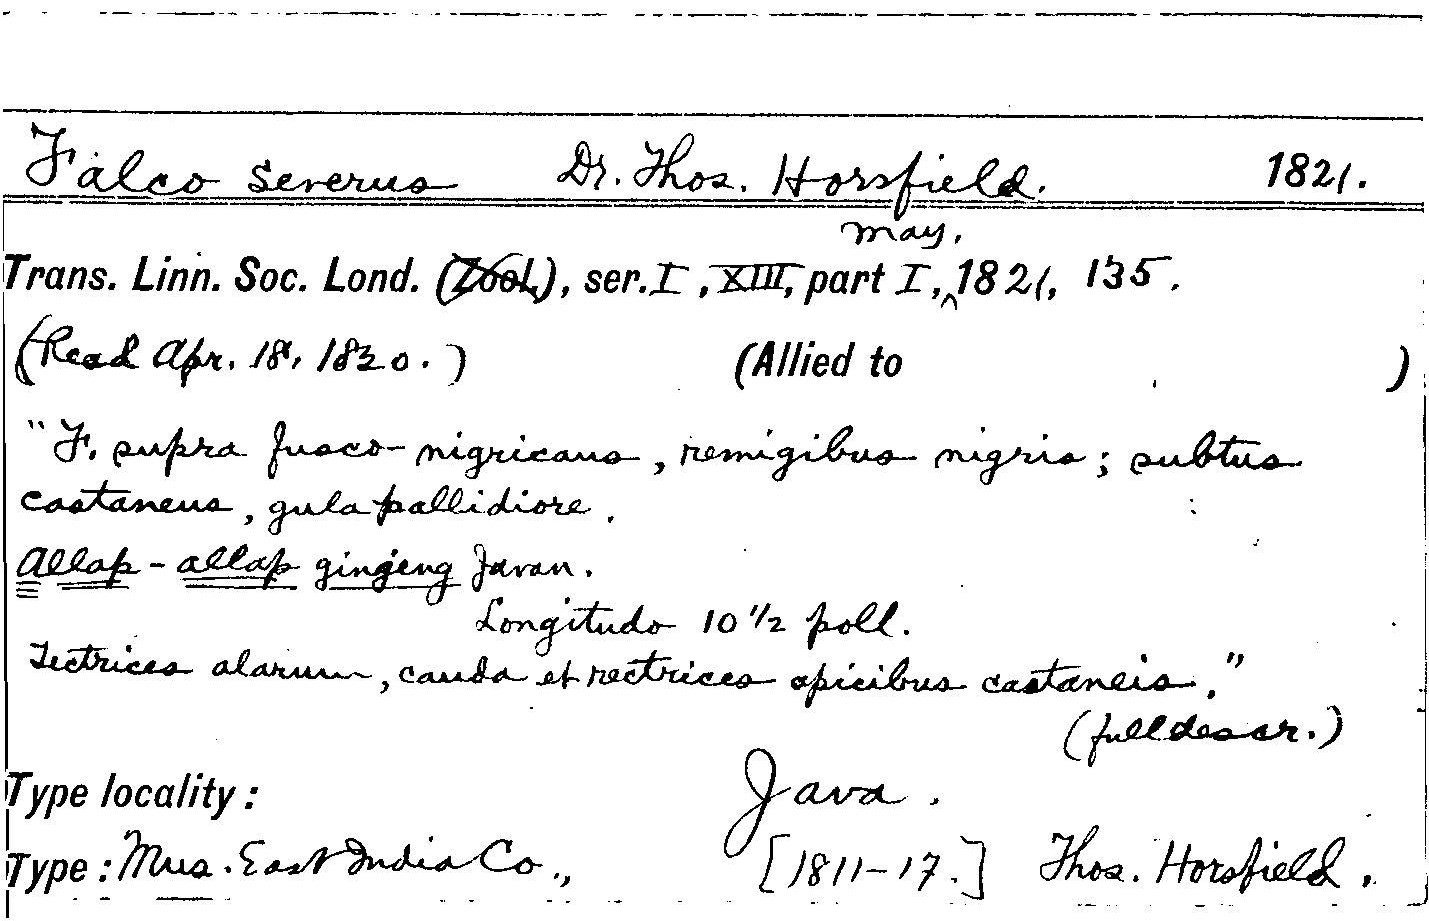 Falco severus Dr. Thos. Horsfield. 1821.
May,
Trans. Linn. Soc. Lond. (Zool.), ser. I, XIII, part I, ^ 1821, 135.
(Read Apr. 18, 1820.) (Allied to )
"F. supra fusco-nigricans, remigibus nigris; subtus
castaneus, gula pallidiore.
Allap-allap gingeng Javan.
Longitudo 10 1/2 poll.
Tectrices alarum, cauda et rectrices apicibus castaneis."
(full descr.)
Type locality: Java.
Type: Mus. East India Co., [1811-17.] Thos. Horsfield.